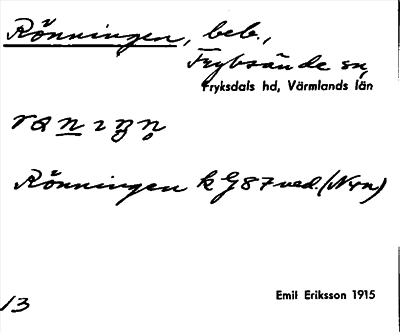 Rönningen, beb.,
Fryksände sn,
Fryksdals hd, Värmlands län
Rönningen k G87 ved. (Nyn)
Emil Eriksson 1915
13